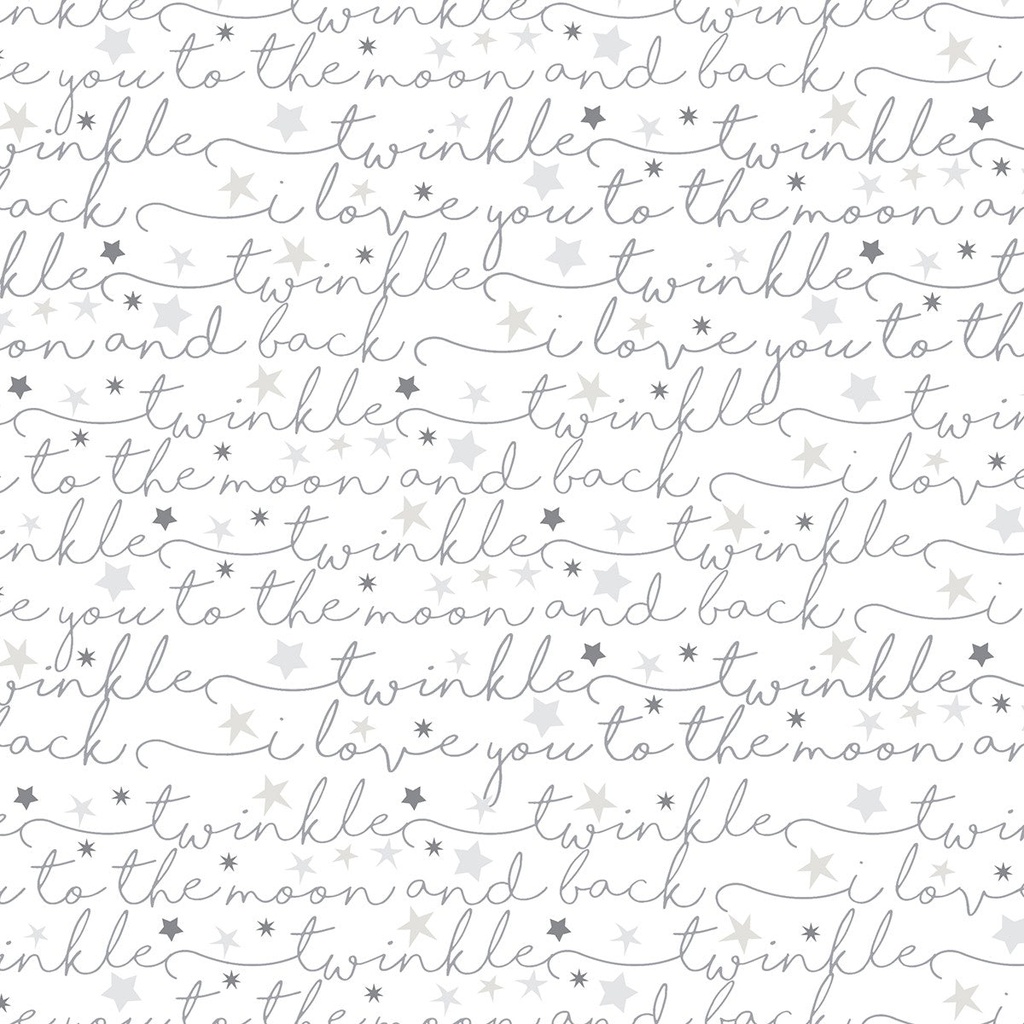 twinkle twinkle twinkle
you to the moon and back i
twinkle twinkle twinkle
back i love you to the moon
twinkle twinkle
moon and back i love you to the
twinkle twinkle twinkle
to the moon and back i love
twinkle twinkle twinkle
you to the moon and back i
twinkle twinkle twinkle
back i love you to the moon
twinkle twinkle
to the moon and back i love
twinkle twinkle twinkle
you to the moon and back i